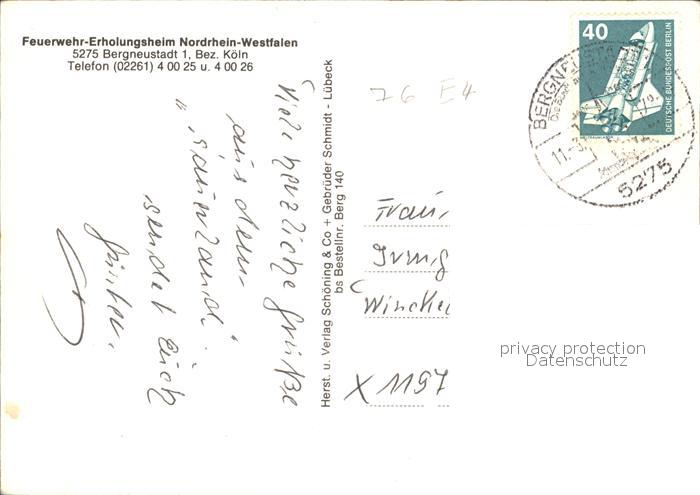 Feuerwehr-Erholungsheim Nordrhein-Westfalen
5275 Bergneustadt 1, Bez. Köln
Telefon (02261) 4 00 25 u. 4 00 26
Viele herzliche Grüße
aus dem
"Sauerland"
sendet Euch
Günter.
Herst. u. Verlag Schöning & Co + Gebrüder Schmidt - Lübeck
bs Bestellnr. Berg 140
76 E4
40
DEUTSCHE BUNDESPOST BERLIN
BERGNE
11.-3.
5275
Frau
Irmg
Winckel
X 1197
privacy protection
Datenschutz